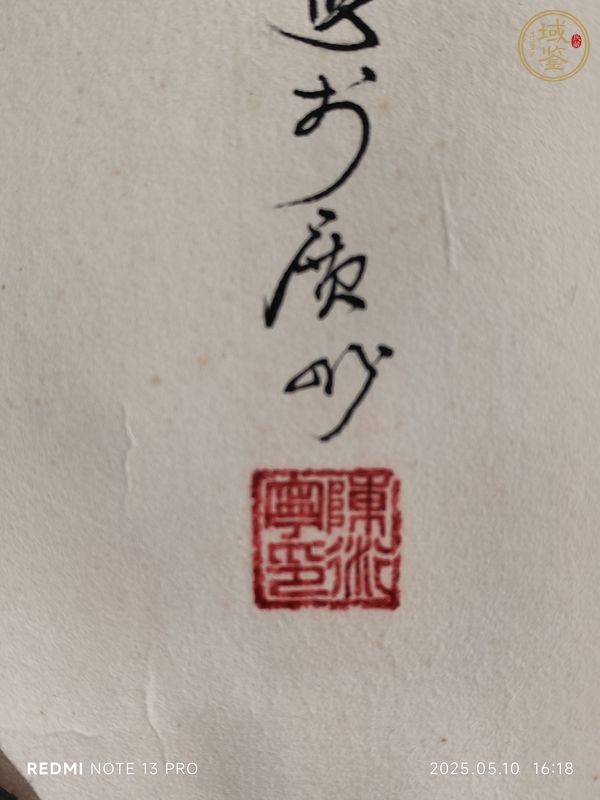 写
於
广
州
陳衍
寧印
域鉴
REDMI NOTE 13 PRO
2025.05.10 16:18